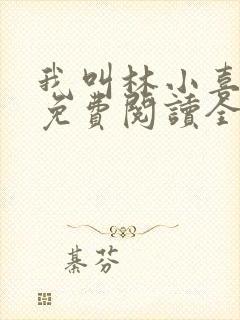 我叫林小喜
免費閱讀全
綦芬